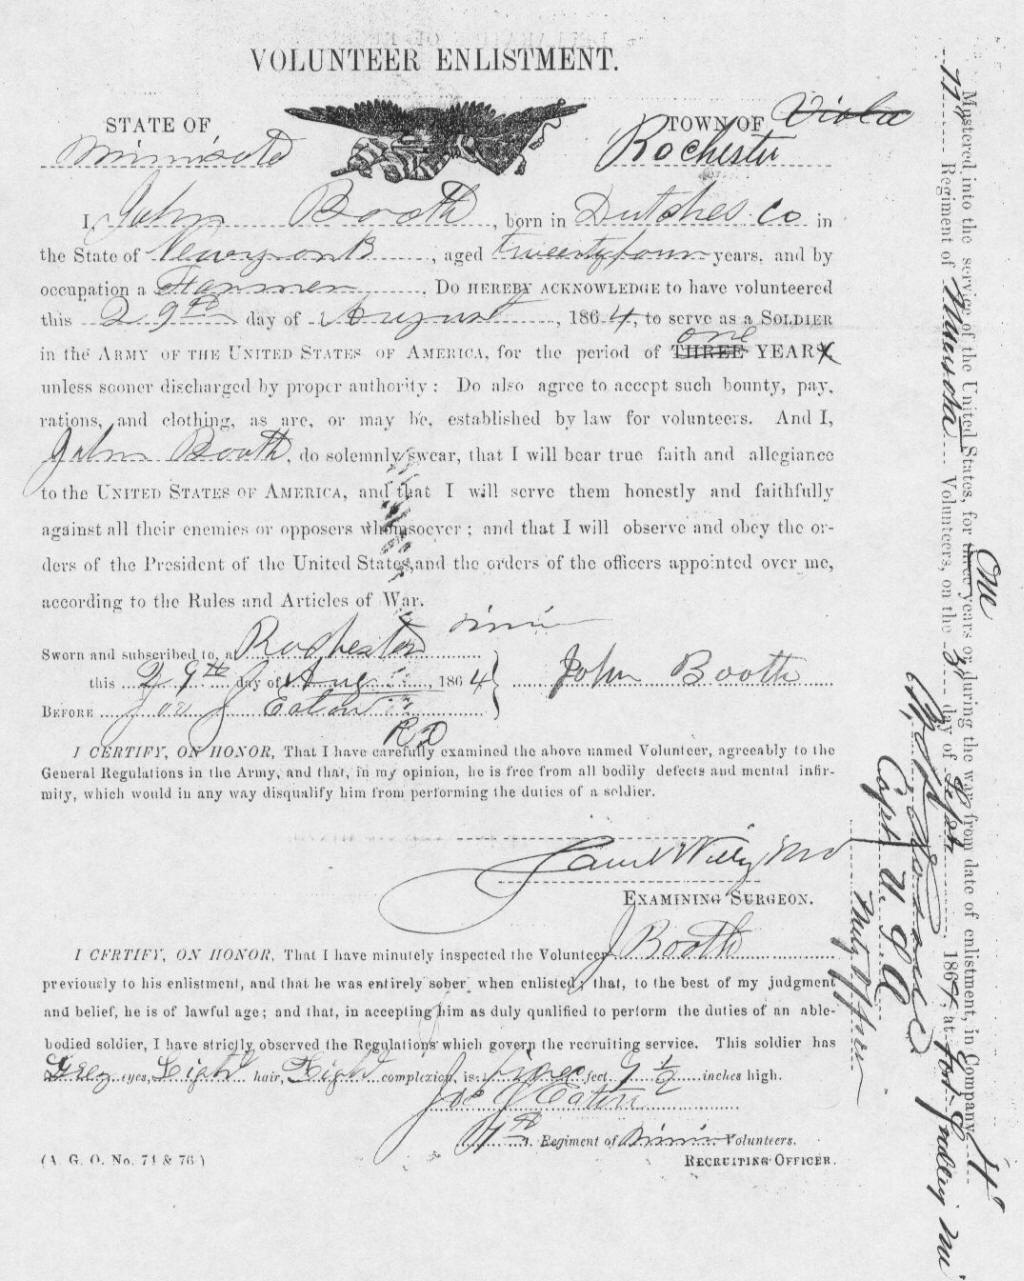 VOLUNTEER ENLISTMENT.
STATE OF
TOWN OF Viola
Minnisota
Rochester
I, John Booth, born in Dutches Co in
the State of Newyork, aged twentyfour years, and by
occupation a Farmer. DO HEREBY ACKNOWLEDGE to have volunteered
this 29th day of August, 1864, to serve as a SOLDIER
one
in the ARMY OF THE UNITED STATES OF AMERICA, for the period of THREE YEARS
unless sooner discharged by proper authority: Do also agree to accept such bounty, pay,
rations, and clothing, as are, or may be, established by law for volunteers. And I,
John Booth, do solemnly swear, that I will bear true faith and allegiance
to the UNITED STATES OF AMERICA, and that I will serve them honestly and faithfully
against all their enemies or opposers whomsoever; and that I will observe and obey the or-
ders of the President of the United States, and the orders of the officers appointed over me,
according to the Rules and Articles of War.
Sworn and subscribed to, at Rochester Minn
this 29th day of Aug 1864
John Booth
BEFORE Joe J Eaton
I CERTIFY, ON HONOR, That I have carefully examined the above named Volunteer, agreeably to the
General Regulations in the Army, and that, in my opinion, he is free from all bodily defects and mental infir-
mity, which would in any way disqualify him from performing the duties of a soldier.
EXAMINING SURGEON.
I CERTIFY, ON HONOR, That I have minutely inspected the Volunteer J Booth
previously to his enlistment, and that he was entirely sober when enlisted; that, to the best of my judgment
and belief, he is of lawful age; and that, in accepting him as duly qualified to perform the duties of an able-
bodied soldier, I have strictly observed the Regulations which govern the recruiting service. This soldier has
Grey eyes, Light hair, Light complexion, is five feet 9 1/2 inches high.
Joe J Eaton
Regiment of Minn Volunteers.
RECRUITING OFFICER.
(A. G. O. No. 74 & 76)
Mustered into the service of the United States, for three One years or during the war from date of enlistment, in Company H
11th Regiment of Minnesota Volunteers, on the 3 day of Sept, 1864, at Fort Snelling
Capt U.S.A.
Mus'g Officer